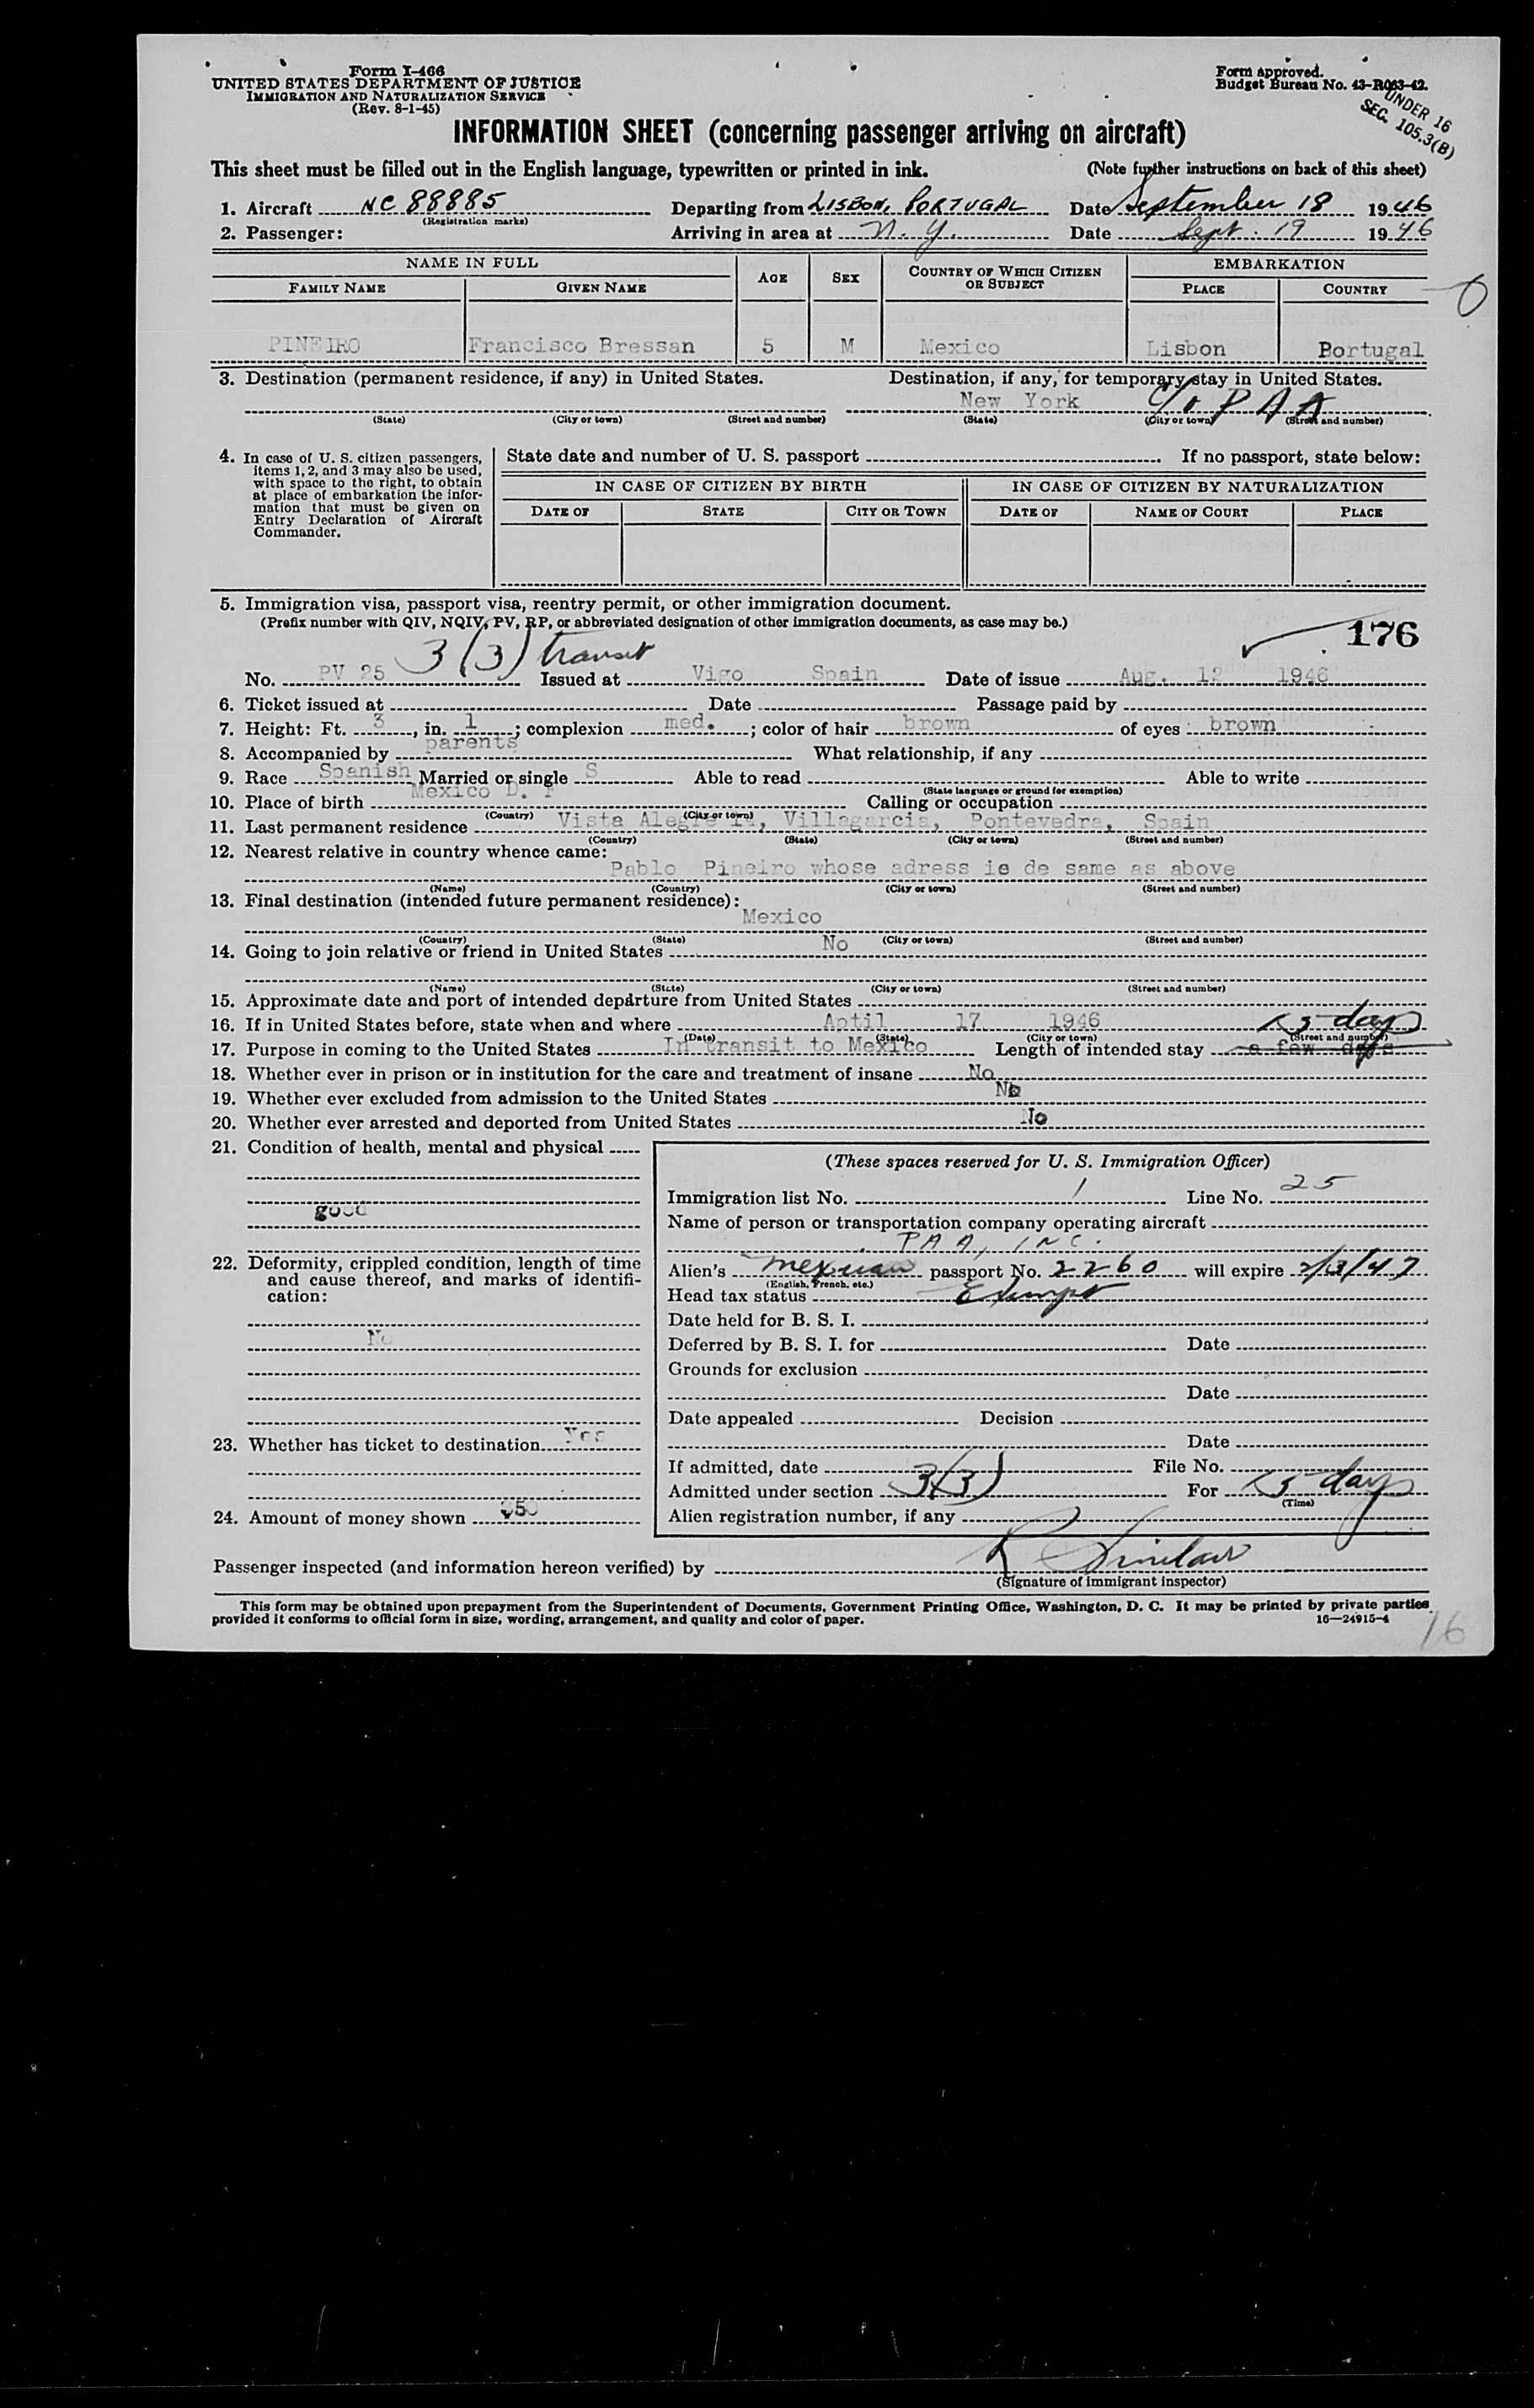 Form I-466
UNITED STATES DEPARTMENT OF JUSTICE
IMMIGRATION AND NATURALIZATION SERVICE
(Rev. 8-1-45)
Form approved.
Budget Bureau No. 43-R063-42.
UNDER 16
SEC. 105.3(B)
INFORMATION SHEET (concerning passenger arriving on aircraft)
This sheet must be filled out in the English language, typewritten or printed in ink. (Note further instructions on back of this sheet)
1. Aircraft NC 88885 Departing from LISBON, PORTUGAL Date September 18 1946
(Registration marks)
2. Passenger: Arriving in area at N.Y. Date Sept. 19 1946
NAME IN FULL AGE SEX COUNTRY OF WHICH CITIZEN OR SUBJECT EMBARKATION
FAMILY NAME GIVEN NAME PLACE COUNTRY
PINEIRO Francisco Bressan 5 M Mexico Lisbon Portugal
3. Destination (permanent residence, if any) in United States. Destination, if any, for temporary stay in United States.
New York c/o PAA
(State) (City or town) (Street and number) (State) (City or town) (Street and number)
4. In case of U. S. citizen passengers, items 1, 2, and 3 may also be used, with space to the right, to obtain at place of embarkation the information that must be given on Entry Declaration of Aircraft Commander.
State date and number of U. S. passport . If no passport, state below:
IN CASE OF CITIZEN BY BIRTH IN CASE OF CITIZEN BY NATURALIZATION
DATE OF STATE CITY OR TOWN DATE OF NAME OF COURT PLACE
5. Immigration visa, passport visa, reentry permit, or other immigration document.
(Prefix number with QIV, NQIV, PV, RP, or abbreviated designation of other immigration documents, as case may be.)
176
3(3) transit
No. PV 25 Issued at Vigo Spain Date of issue Aug. 12 1946
6. Ticket issued at Date Passage paid by
7. Height: Ft. 3, in. 1; complexion med.; color of hair brown of eyes brown
8. Accompanied by parents What relationship, if any
9. Race Spanish Married or single S Able to read Able to write
(State language or ground for exemption)
10. Place of birth Mexico D. F Calling or occupation
(Country) (City or town)
11. Last permanent residence Vista Alegre 14, Villagarcia, Pontevedra, Spain
(Country) (State) (City or town) (Street and number)
12. Nearest relative in country whence came:
Pablo Pineiro whose adress is de same as above
(Name) (Country) (City or town) (Street and number)
13. Final destination (intended future permanent residence):
Mexico
(Country) (State) (City or town) (Street and number)
14. Going to join relative or friend in United States No
(Name) (State) (City or town) (Street and number)
15. Approximate date and port of intended departure from United States
16. If in United States before, state when and where Aptil 17 1946
(Date) (State) (City or town) (Street and number)
15 days
17. Purpose in coming to the United States In transit to Mexico Length of intended stay a few days
18. Whether ever in prison or in institution for the care and treatment of insane No
19. Whether ever excluded from admission to the United States No
20. Whether ever arrested and deported from United States No
21. Condition of health, mental and physical
good
22. Deformity, crippled condition, length of time and cause thereof, and marks of identification:
No
23. Whether has ticket to destination Yes
24. Amount of money shown
(These spaces reserved for U. S. Immigration Officer)
Immigration list No. 1 Line No. 25
Name of person or transportation company operating aircraft
PAA, INC.
Alien's Mexican passport No. 2260 will expire
(English, French, etc.)
Head tax status Exempt
Date held for B. S. I.
Deferred by B. S. I. for Date
Grounds for exclusion
Date
Date appealed Decision
Date
If admitted, date File No.
Admitted under section 3(3) For 15 days
(Time)
Alien registration number, if any
Passenger inspected (and information hereon verified) by R Sinclair
(Signature of immigrant inspector)
This form may be obtained upon prepayment from the Superintendent of Documents, Government Printing Office, Washington, D. C. It may be printed by private parties
provided it conforms to official form in size, wording, arrangement, and quality and color of paper. 16—24915-4
16